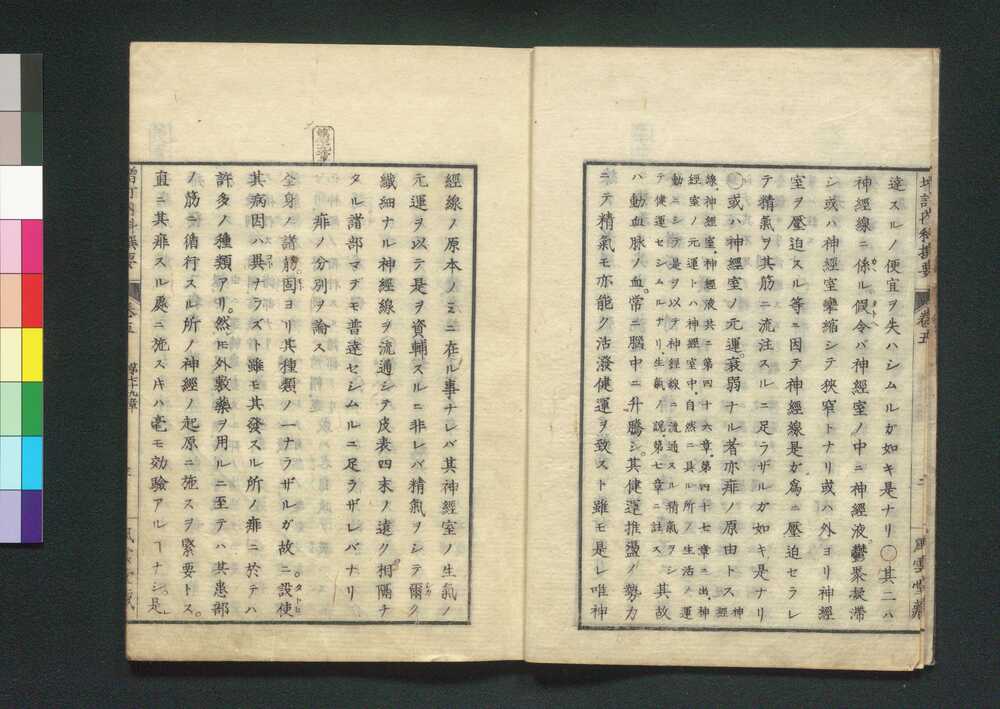 増訂内科撰要 卷五 風雲堂藏
達スルノ便宜ヲ失ハシムルガ如キ是ナリ〇其二ハ
神經線ニ係ル假令バ神經室ノ中ニ神經液鬱聚凝滞
シ或ハ神經室攣縮シテ狹窄トナリ或ハ外ヨリ神經
室ヲ壓迫スル等ニ因テ神經線是ガ爲ニ壓迫セラレ
テ精氣ヲ其筋ニ流注スルニ足ラザルガ如キ是ナリ
〇或ハ神經室ノ元運衰弱ナル者亦痱ノ原由トス神
線、神經室、神經液共ニ第四十六章、第四十七章ニ出、神經
經室ノ元運トハ神經室中、自然ニ具ル所ノ生活ノ運
動ニシテ是ヲ以テ神經線ニ流通スル精氣ヲシ
テ健運セシムルナリ、生氣ノ説、第七章ニ註ス 其故
ハ動血脉ノ血常ニ腦中ニ升騰シ其健運推盪ノ勢力
ニテ精氣モ亦能ク活潑健運ヲ致スト雖モ是レ唯神
經線ノ原本ノミニ在ル事ナレバ其神經室ノ生氣ノ
元運ヲ以テ是ヲ資輔スルニ非レバ精氣ヲシテ爾ク
纖細ナル神經線ヲ流通シテ皮表四末ノ遠ク相隔チ
タル諸部マデモ普達セシムルニ足ラザレバナリ
痱ノ分別ヲ論ス
全身ノ諸筋固ヨリ其種類ノ一ナラザルガ故ニ設使
其病因ハ異ナラズト雖モ其發スル所ノ痱ニ於テハ
許多ノ種類アリ然ドモ外敷藥ヲ用ルニ至テハ其患部
ノ筋ニ循行スル所ノ神經ノ起原ニ施スヲ緊要トス
直ニ其痱スル處ニ施スキハ毫モ効驗アルヿナシ是
増訂内科撰要 卷五 第七十九章